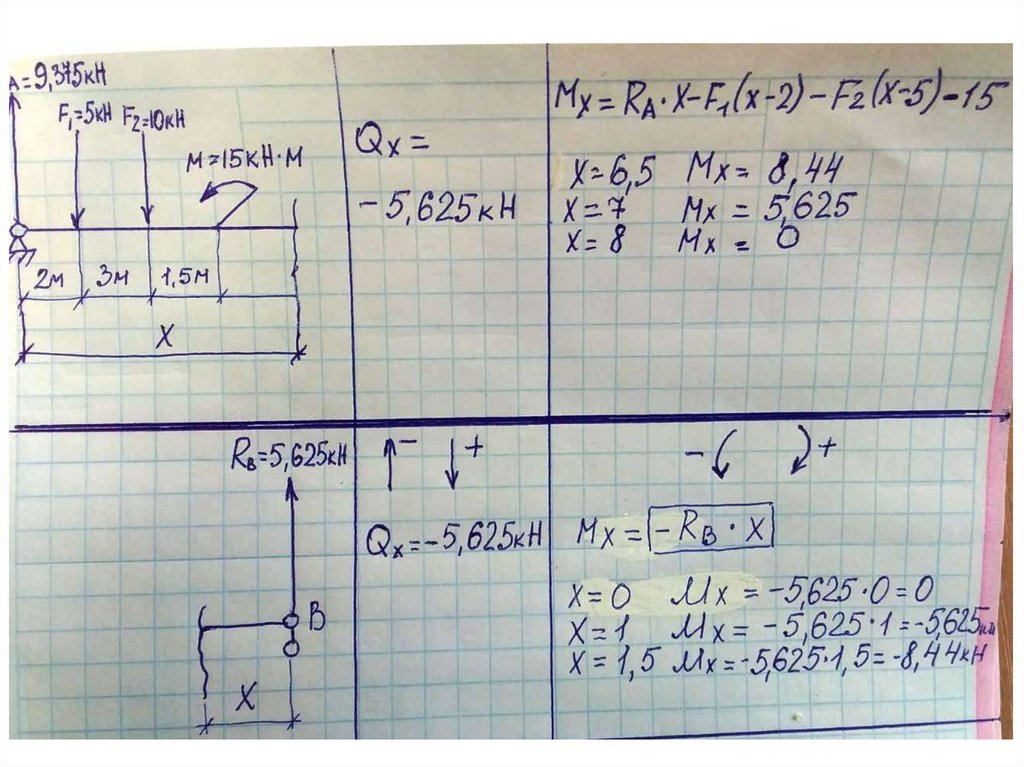 A=9,375кН
F₁=5кН F₂=10кН
M=15кН·м
2м 3м 1,5м
X
Qx =
-5,625кН
Mx = RA·X-F₁(x-2)-F₂(x-5)-15
X=6,5 Mx= 8,44
X=7 Mx = 5,625
X=8 Mx = 0
RB=5,625кН
B
X
- +
Qx=-5,625кН
- +
Mx = -RB·X
X=0 Mx = -5,625·0=0
X=1 Mx = -5,625·1=-5,625кН
X=1,5 Mx=-5,625·1,5=-8,44кН